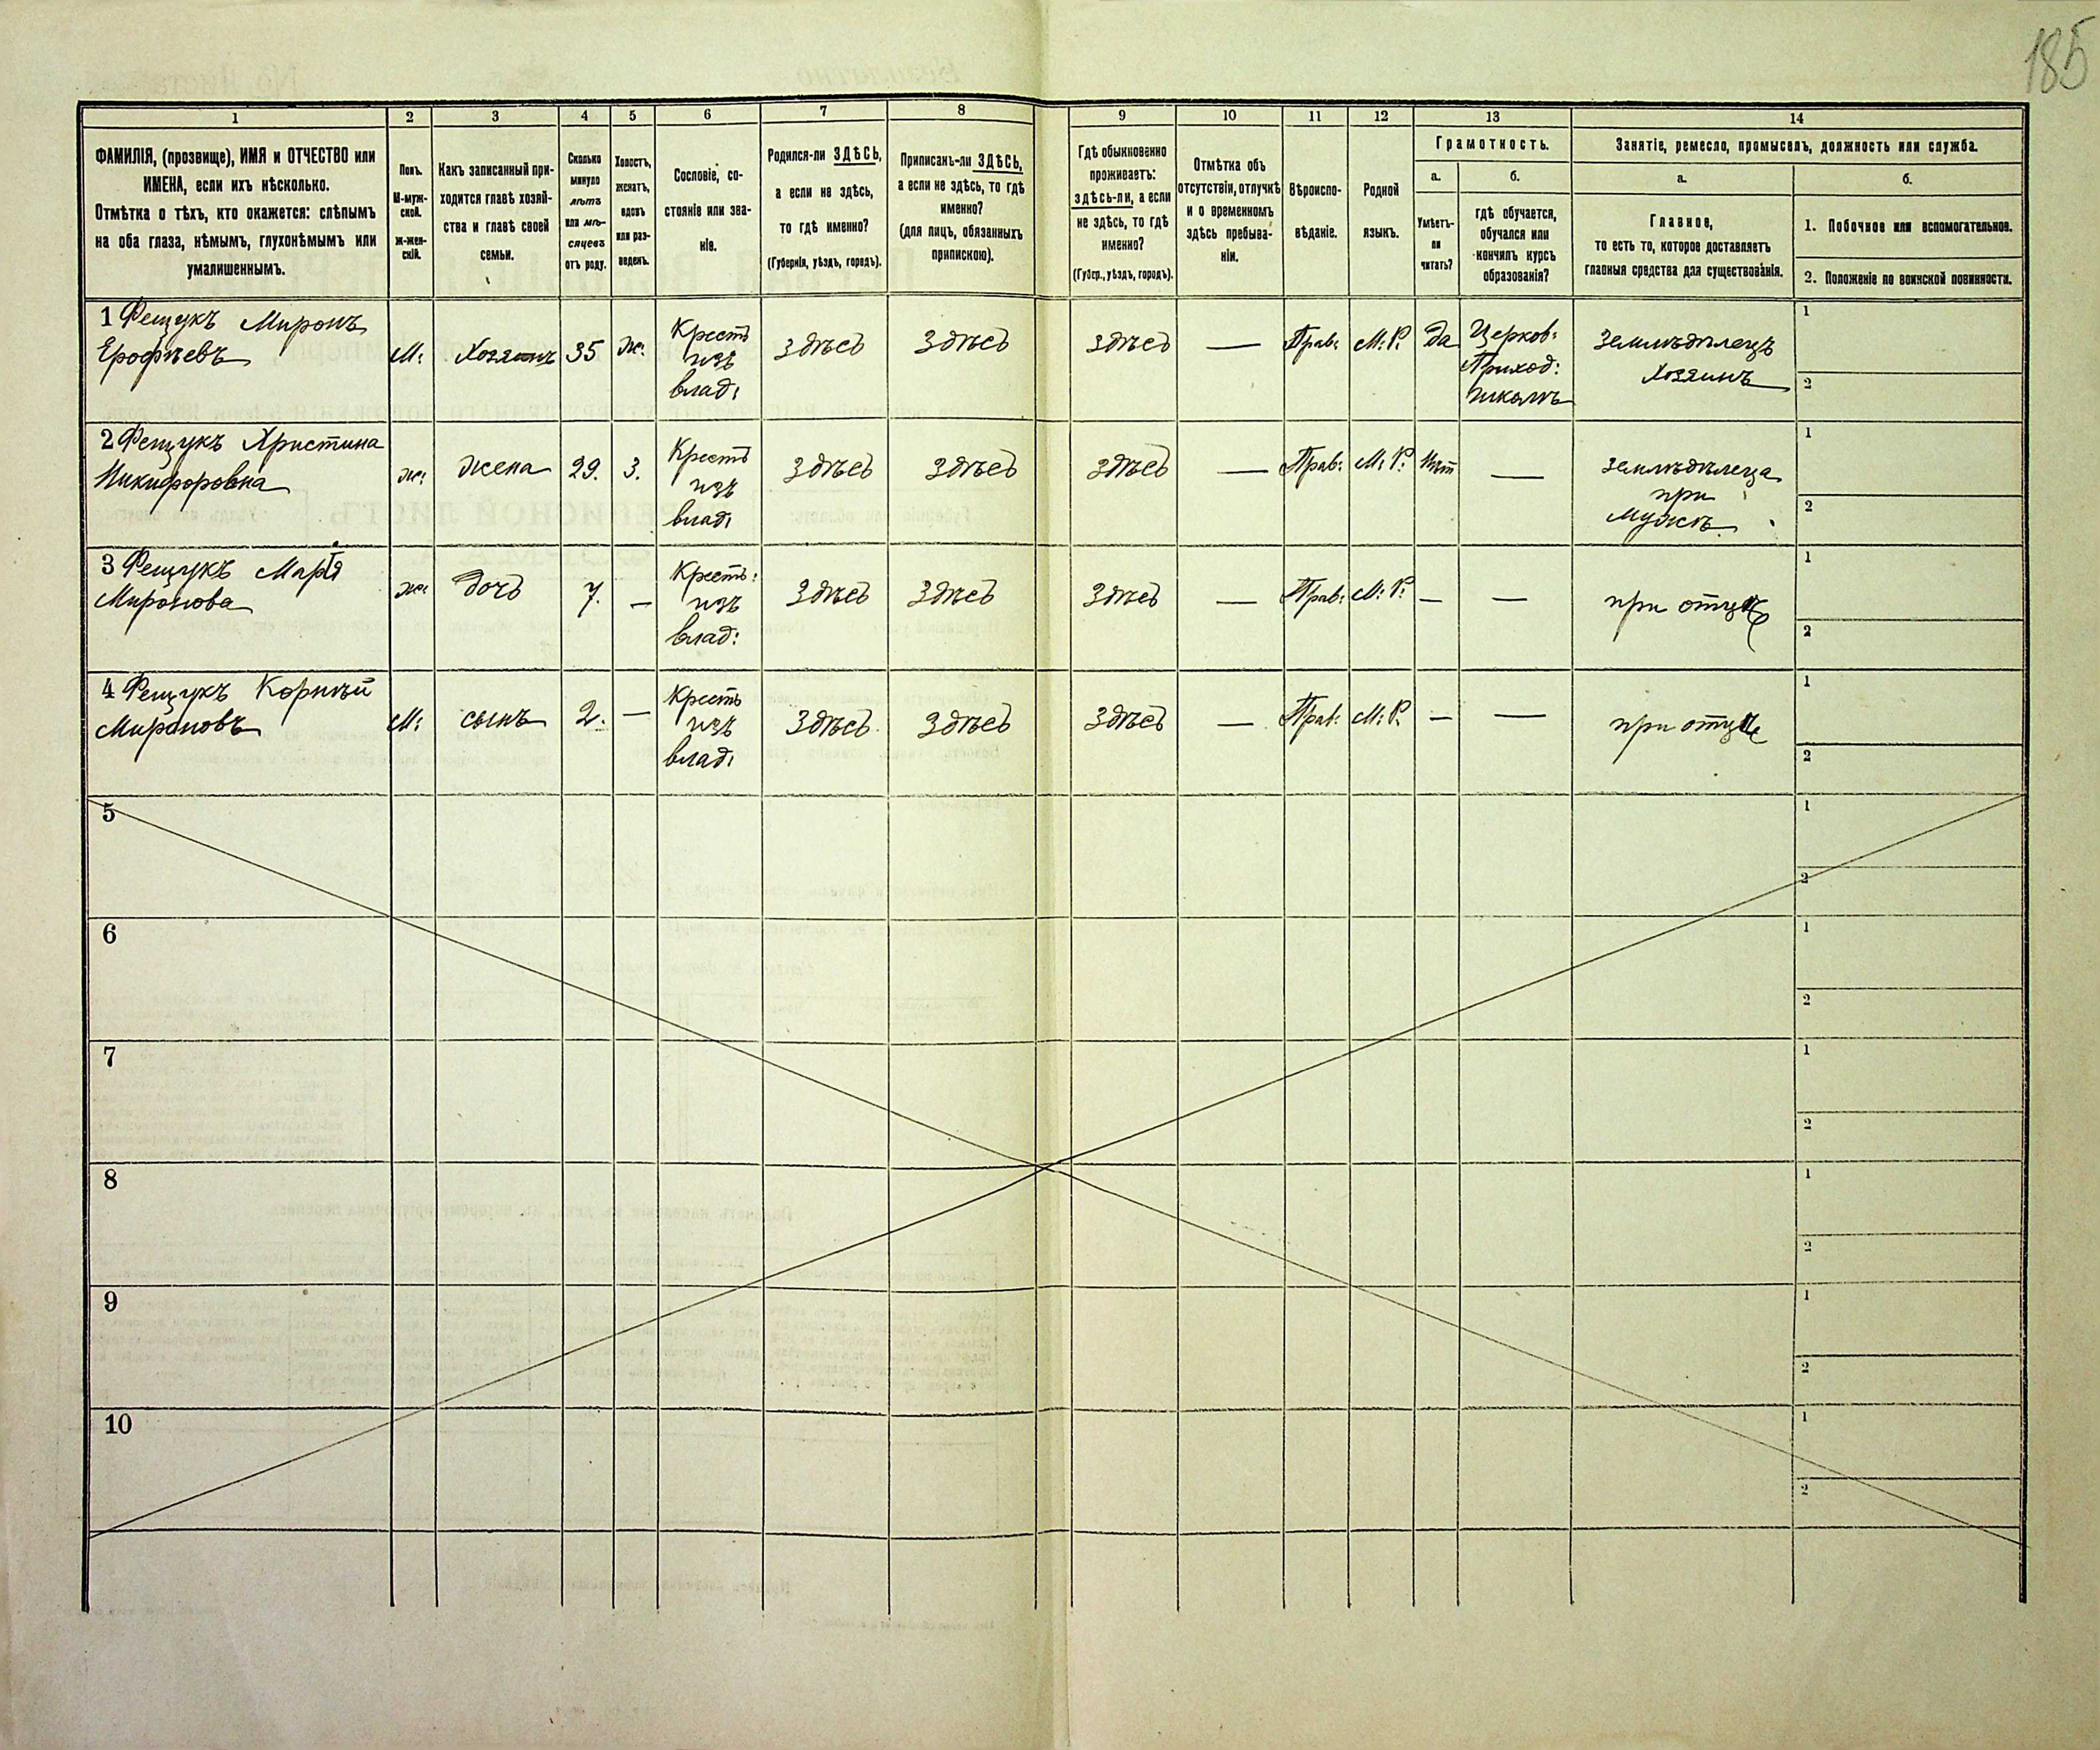 185
1 2 3 4 5 6 7 8 9 10 11 12 13 14
ФАМИЛІЯ, (прозвище), ИМЯ и ОТЧЕСТВО или
ИМЕНА, если ихъ нѣсколько.
Отмѣтка о тѣхъ, кто окажется: слѣпымъ
на оба глаза, нѣмымъ, глухонѣмымъ или
умалишеннымъ.
Полъ.
М-муж-
ской.
ж-жен-
скій.
Какъ записанный при-
ходится главѣ хозяй-
ства и главѣ своей
семьи.
Сколько
минуло
лѣтъ
или мѣ-
сяцевъ
отъ роду.
Холостъ,
женатъ,
вдовъ
или раз-
веденъ.
Сословіе, со-
стояніе или зва-
ніе.
Родился-ли ЗДѢСЬ,
а если не здѣсь,
то гдѣ именно?
(Губернія, уѣздъ, городъ).
Приписанъ-ли ЗДѢСЬ,
а если не здѣсь, то гдѣ
именно?
(для лицъ, обязанныхъ
припискою).
Гдѣ обыкновенно
проживаетъ:
здѣсь-ли, а если
не здѣсь, то гдѣ
именно?
(Губер., уѣздъ, городъ).
Отмѣтка объ
отсутствіи, отлучкѣ
и о временномъ
здѣсь пребыва-
ніи.
Вѣроиспо-
вѣданіе.
Родной
языкъ.
Грамотность.
а.
Умѣетъ-
ли
читать?
б.
гдѣ обучается,
обучался или
кончилъ курсъ
образованія?
Занятіе, ремесло, промыселъ, должность или служба.
а.
Главное,
то есть то, которое доставляетъ
главныя средства для существованія.
б.
1. Побочное или вспомогательное.
2. Положеніе по воинской повинности.
1 Фещукъ Миронъ
Ерофѣевъ
М:
Хозяинъ
35
Ж:
Кресть
изъ
влад:
Здѣсь
Здѣсь
Здѣсь
—
Прав:
М: Р:
да
Церков:
Приход:
школѣ
Землѣдѣлецъ
Хозяинъ
1
2
2 Фещукъ Христина
Никифоровна
ж:
жена
29.
З.
Кресть
изъ
влад:
Здѣсь
Здѣсь
Здѣсь
—
Прав:
М: Р:
Нѣт
—
землѣдѣлеца
при
Мужѣ
1
2
3 Фещукъ Марія
Миронова
ж:
дочь
7.
—
Кресть:
изъ
влад:
Здѣсь
Здѣсь
Здѣсь
—
Прав:
М: Р:
—
—
при отцѣ
1
2
4 Фещукъ Корнѣй
Мироновъ
М:
сынъ
2.
—
Кресть
изъ
влад:
Здѣсь
Здѣсь
Здѣсь
—
Прав:
М: Р:
—
—
при отцѣ
1
2
5
1
2
6
1
2
7
1
2
8
1
2
9
1
2
10
1
2